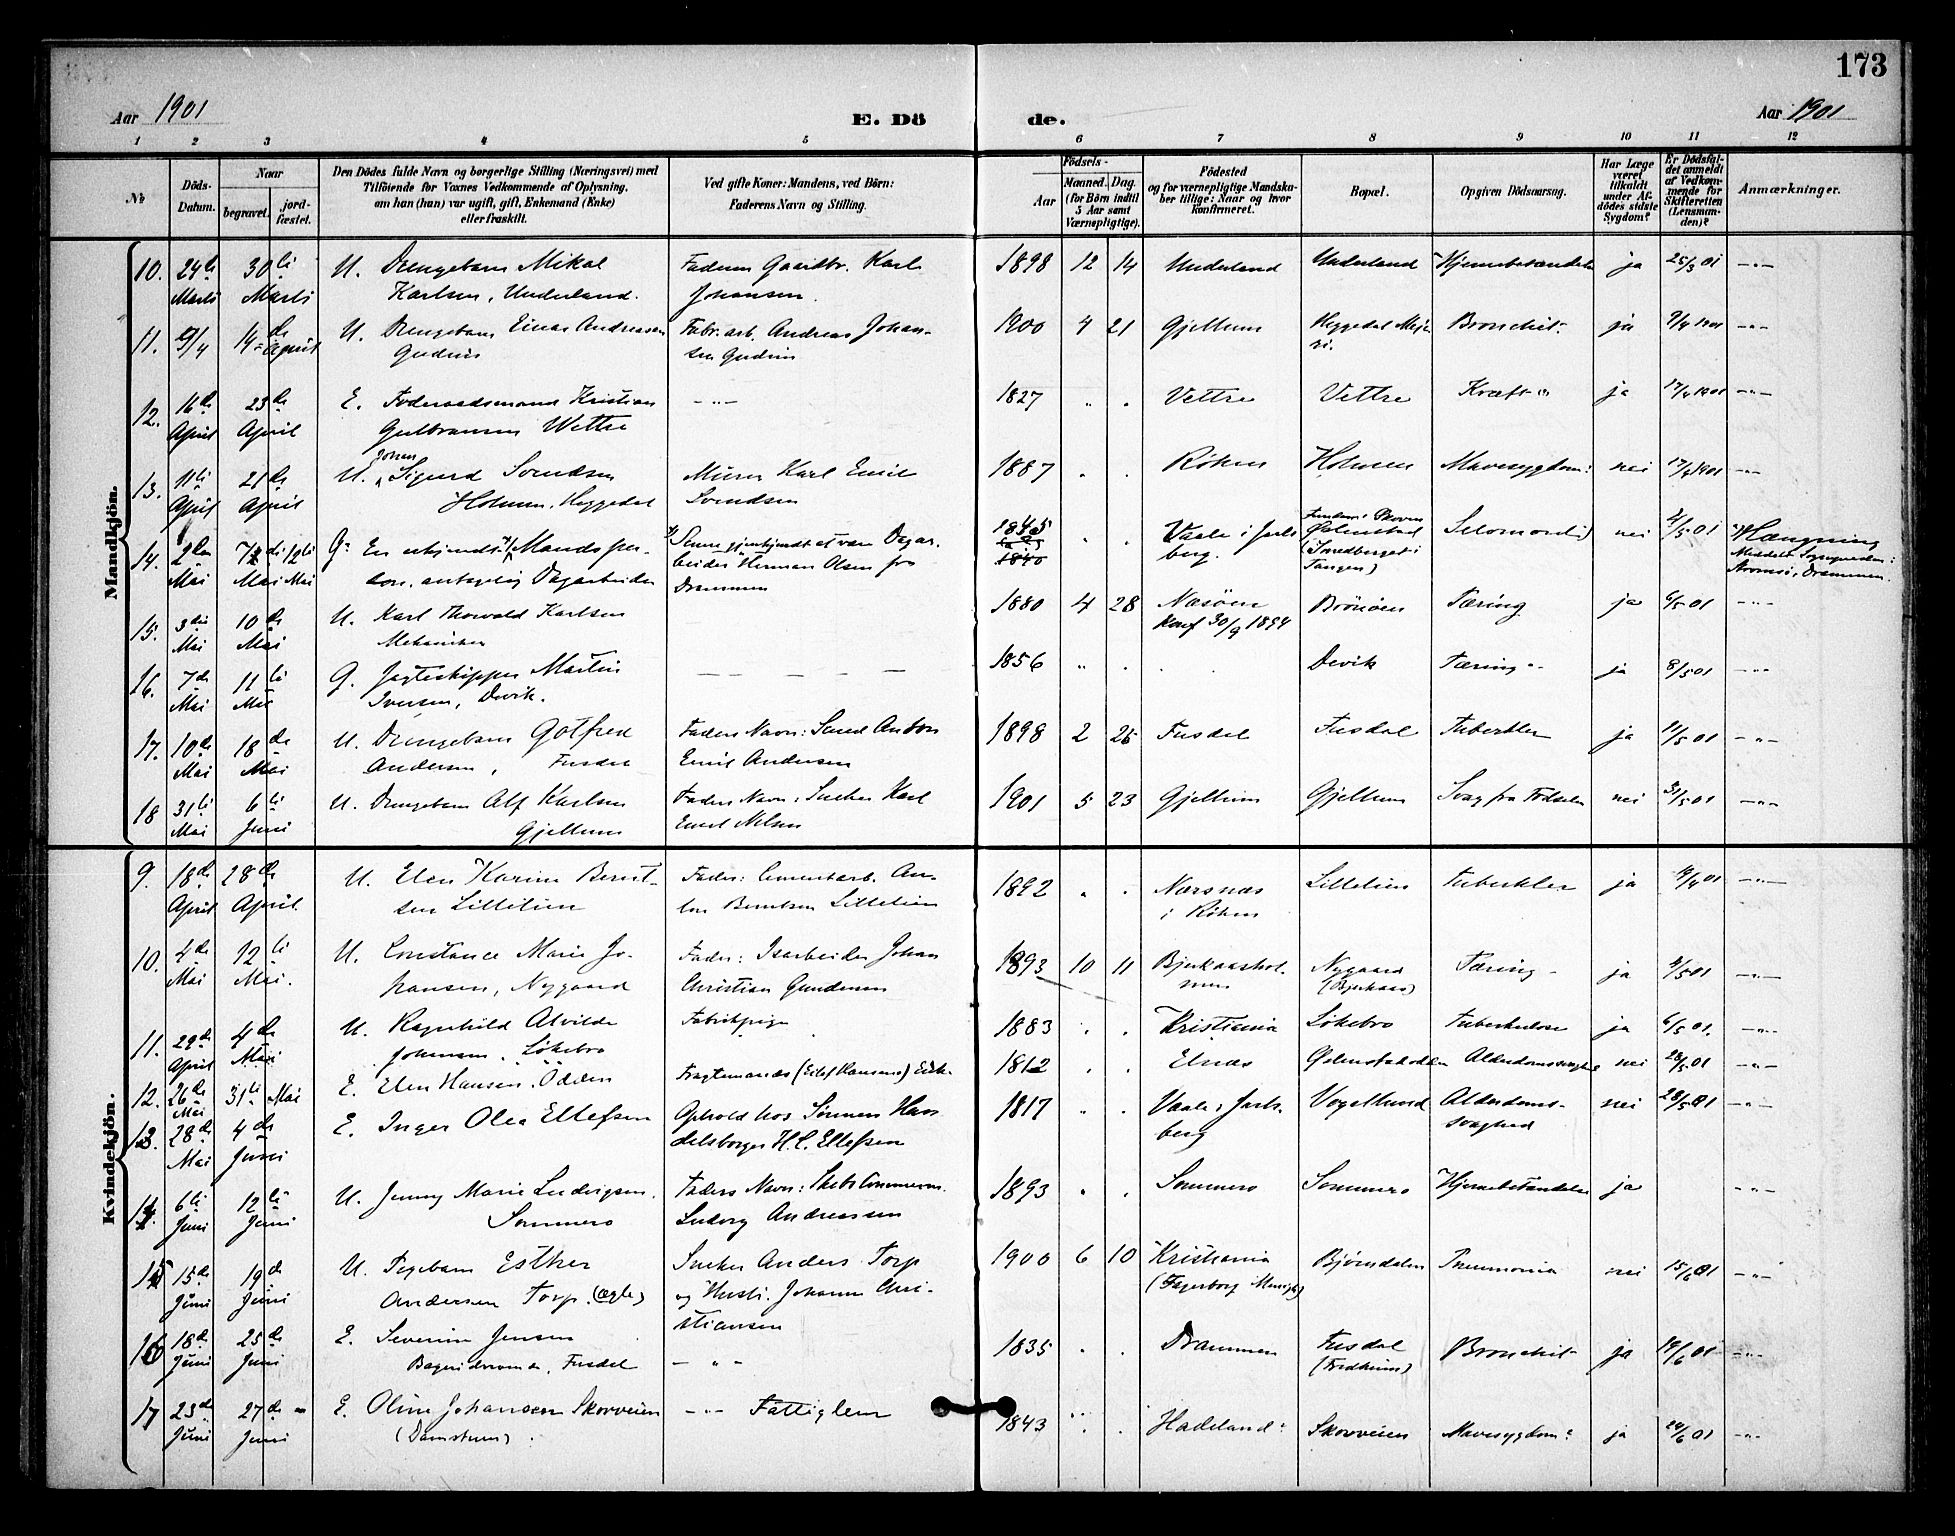 173
Aar 1901
E. Dö de.
Aar 1901
1 2 3 4 5 6 7 8 9 10 11 12
№
Döds-Datum.
Naar
begravet.
jordfæstet.
Den Dödes fulde Navn og borgerlige Stilling (Næringsvei) med
Tilföiende for Voxnes Vedkommende af Oplysning,
om han (hun) var ugift, gift, Enkemand (Enke)
eller fraskilt.
Ved gifte Koner: Mandens, ved Börn:
Faderens Navn og Stilling.
Födsels-
Aar
Maaned. Dag.
(for Börn indtil
5 Aar samt
Værnepligtige).
Födested
og for værnepligtige Mandska-
ber tillige: Naar og hvor
konfirmeret.
Bopæl.
Opgiven Dödsaarsag.
Har Læge
været
tilkaldt
under Af-
dödes sidste
Sygdom?
Er Dödsfal-
det anmeldt
af Vedkom-
mende for
Skifteretten
(Lensman-
den)?
Anmærkninger.
Mandkjön.
10. 24de Marts 30te Marts U. Drengebarn Mikal Karlsen, Underland. Faderen Gaardbr. Karl Johansen. 1898 12 14 Underland Underland Hjernebetændelse ja 25/3 01 -"-
11. 9/4 14de April U. Drengebarn Einar Andreasen Gudim Fabr. arb. Andreas Johansen Gudim 1900 4 21 Gjellum Heggedal Bronchit ja 9/4 1901 -"-
12. 16de April 23de April E. Föderaadsmand Kristian Gulbransen Wettre -"- 1827 " . Vettre Vettre Kræft ja 17/4 1901 -"-
13. 11te April 21de April U. Johan Sigurd Svendsen Holmen, Heggedal Murer Karl Emil Svendsen 1887 " . Röken Holmen Mavesygdom nei 17/4 1901 -"-
14. 2den Mai 7de Mai 12te Mai G. En ukjendt Mandsperson, antagelig Dagarbeider Senere gjenkjendt at være Dagarbeider Herman Olsen fra Drammen 1845 Vaale i Jarlsberg. (Smedberget i Tangen) Selvmord nei 4/5 01 Hængning
15. 3die Mai 10de Mai U. Karl Thorvald Karlsen Mekaniker 1880 4 28 Nesöen konf 30/9 1894 Brönöen Tæring ja 6/5 01 -"-
16. 7de Mai 11te Mai G. Jagteskipper Martin Iversen, Devik. — — — 1856 " . . Devik Tæring ja 8/5 01 -"-
17. 10de Mai 18de Mai U. Drengebarn Gotfred Andersen, Fusdal Faders Navn: Smed Anton Emil Andersen 1898 2 25 Fusdal Fusdal Tuberkler ja 11/5 01 -"-
18 31te Mai 6te Juni U. Drengebarn Alf Karlsen Gjellum Faders Navn: Snekker Karl Emil Nilsen 1901 5 23 Gjellum Gjellum Svag fra Födselen nei 31/5 01 -"-
Kvindekjön.
9. 18de April 28de April U. Elen Karine Berntsen Lillelien Fader: Cementarb. Anton Berntsen Lillelien 1892 " . Nærsnæs i Röken Lillelien Tuberkler ja 01 -"-
10. 4de Mai 12te Mai. U. Constance Marie Johansen, Nygaard Fader: Isarbeider Johan Christian Gundersen 1893 10 11 Bjerkaasholmen Nygaard (Bjerkaas) Tæring ja 01 -"-
11. 29de April 4de Mai U. Ragnhild Alvilde Johansen, Lökebro Fabrikpige 1883 " . Kristiania Lökebro Tuberkulose ja 6/5 01. -"-
12. 26de Mai 31te Mai E. Elen Hansen, Odden Fragtemands (Eilef Hansens) Enke 1812 . . Elnæs Alderdomssvaghed nei 28/5 01 -"-
13. 28de Mai 4de Juni E. Inger Olea Ellefsen Ophold hos Sönnen Handelsborger H. C. Ellefsen 1817 " . Vaale i Jarlsberg Vogellund Alderdomssvaghed nei 28/5 01 -"-
14. 6te Juni 12te Juni U. Jenny Marie Ludvigsen, Sommero Faders Navn: Skibstömmerm. Ludvig Andreassen 1893 " . Sommero Sommero Hjernebetændelse ja -"-
15 15de Juni 19de Juni U. Pigebarn Esther Andersen Torp. (ægte) Snekker Anders Torp og Hustru Johanne Christiansen 1900 6 10 Kristiania (Fagerborg Menigh.) Björndalen Pneumonia nei 15/6 01 -"-
16 18de Juni 25de Juni E. Severine Jensen Fusdal - " - 1835 . . Drammen Fusdal (Fredheim) Bronchit ja 19/6 01 -"-
17 23de Juni 27de Juni E. Oline Johansen Skorveien (Damstuen). -"- Fattiglem 1843 . . Hadeland Skorveien Mavesygdom ja 24/6 01 -"-